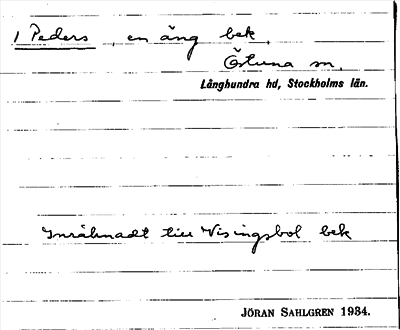 1 Peders, en äng bek.
Östuna sn.
Långhundra hd, Stockholms län.
Inräknadt till Visingsbol bek
JÖRAN SAHLGREN 1934.